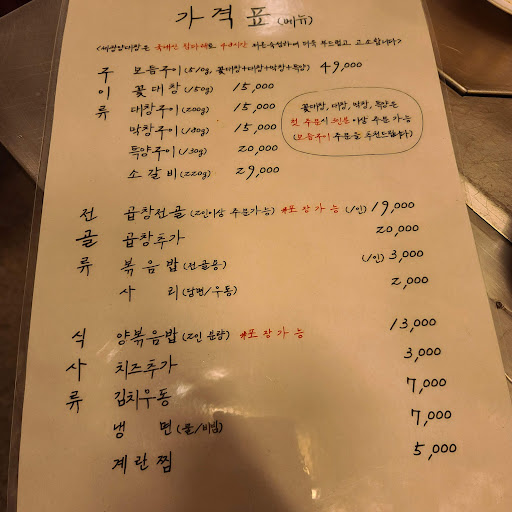 가격표 (메뉴)
<세광양대창은 국내산 한마리로 48시간 저온숙성하여 더욱 부드럽고 고소합니다>
구이류
모듬구이 (510g, 꽃대창+대창+막창+특양) 49,000
꽃대창 (150g) 15,000
대창구이 (200g) 15,000
막창구이 (180g) 15,000
특양구이 (130g) 20,000
소갈비 (220g) 29,000
꽃대창, 대창, 막창, 특양은
첫 주문시 3인분 이상 주문 가능
(모듬구이 주문을 추천드립니다)
전골류
곱창전골 (2인이상 주문가능) #포장가능 (1인) 19,000
곱창추가 20,000
볶음밥 (전골용) (1인) 3,000
사리 (당면/우동) 2,000
식사류
양볶음밥 (2인 분량) #포장가능 13,000
치즈추가 3,000
김치우동 7,000
냉면 (물/비빔) 7,000
계란찜 5,000